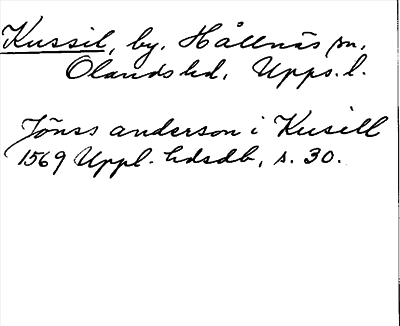 Kussil, by, Hållnäs sn,
Olands hd, Upps. l.
Jönss anderson i Kusill
1569 Uppl. hdsdb, s. 30.